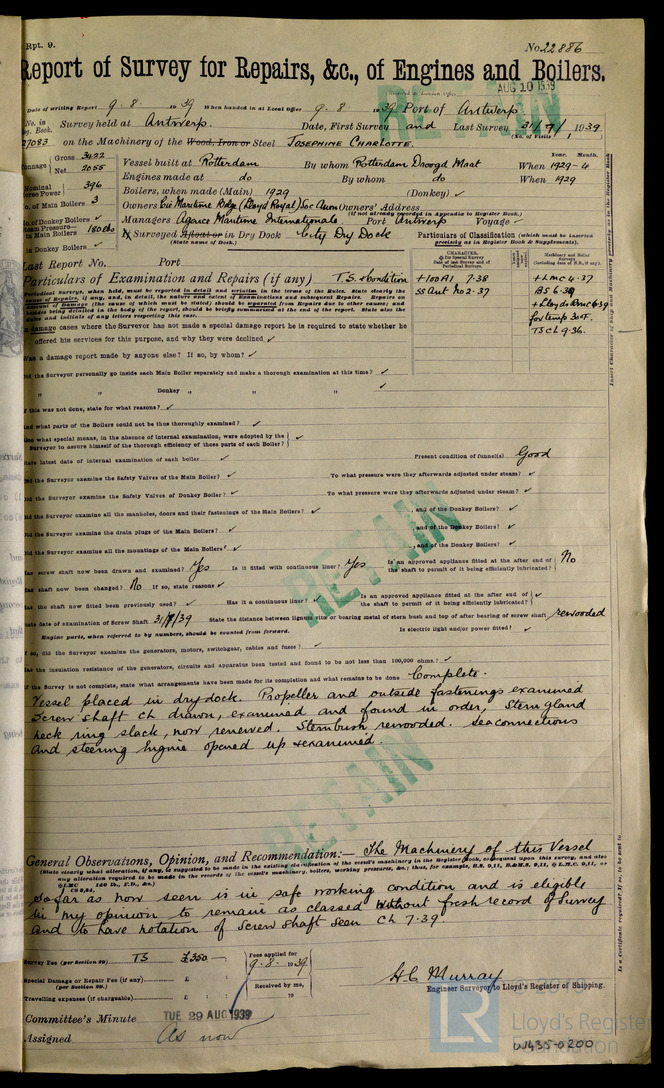 Rpt. 9.
No. 22886
Report of Survey for Repairs, &c., of Engines and Boilers.
AUG 10 1939
RETAIN
Date of writing Report 9. 8. 1939 When handed in at Local Office 9. 8. 1939 Port of Antwerp
No. in Reg. Book. Survey held at Antwerp. Date, First Survey and Last Survey 31/7/, 1939
(No. of Visits)
27083 on the Machinery of the Wood, Iron or Steel JOSEPHINE CHARLOTTE.
Tonnage Gross 3422
Net 2055
Vessel built at Rotterdam By whom Rotterdam Droogd Maat When 1929-4
Year. Month.
Engines made at do By whom do When 1929
Nominal Horse Power 396
Boilers, when made (Main) 1929 (Donkey) ✓
No. of Main Boilers 3
Owners' Address
(if not already recorded in Appendix to Register Book.)
No. of Donkey Boilers ✓
Managers Agence Maritime Internationale Port Antwerp Voyage ✓
Steam Pressure in Main Boilers 180 lbs
Surveyed Afloat or in Dry Dock City Dry Dock
(State name of Dock.)
in Donkey Boilers ✓
Particulars of Classification (which must be inserted precisely as in Register Book & Supplements).
Last Report No. Port
Particulars of Examination and Repairs (if any) T.S. & Condition
+100A1 7.38
SS Ant No 2.37
+LMC 4.37
BS 6.39
for temp 30° F.
TS CL 9.36.
offered his services for this purpose, and why they were declined ✓
Was a damage report made by anyone else? If so, by whom? ✓
Did the Surveyor personally go inside each Main Boiler separately and make a thorough examination at this time? ✓
" " Donkey " " " ✓
If this was not done, state for what reasons? ✓
And what parts of the Boilers could not be thus thoroughly examined? ✓
Also what special means, in the absence of internal examination, were adopted by the Surveyor to assure himself of the thorough efficiency of those parts of each Boiler? ✓
State latest date of internal examination of each boiler ✓ Present condition of funnel(s) Good
Did the Surveyor examine the Safety Valves of the Main Boiler? ✓ To what pressure were they afterwards adjusted under steam? ✓
Did the Surveyor examine the Safety Valves of Donkey Boiler? ✓ To what pressure were they afterwards adjusted under steam? ✓
Did the Surveyor examine all the manholes, doors and their fastenings of the Main Boilers? ✓, and of the Donkey Boilers? ✓
Did the Surveyor examine the drain plugs of the Main Boilers? ✓, and of the Donkey Boilers? ✓
Did the Surveyor examine all the mountings of the Main Boilers? ✓, and of the Donkey Boilers? ✓
Has screw shaft now been drawn and examined? Yes Is it fitted with continuous liner? Yes Is an approved appliance fitted at the after end of the shaft to permit of it being efficiently lubricated? No
Has shaft now been changed? No If so, state reasons ✓
Has the shaft now fitted been previously used? ✓ Has it a continuous liner? ✓ Is an approved appliance fitted at the after end of the shaft to permit of it being efficiently lubricated? ✓
State date of examination of Screw Shaft 31/7/39 State the distance between lignum vitæ or bearing metal of stern bush and top of after bearing of screw shaft rewooded
Engine parts, when referred to by numbers, should be counted from forward. Is electric light and/or power fitted? ✓
If so, did the Surveyor examine the generators, motors, switchgear, cables and fuses? ✓
Has the insulation resistance of the generators, circuits and apparatus been tested and found to be not less than 100,000 ohms? ✓
If the Survey is not complete, state what arrangements have been made for its completion and what remains to be done Complete.
Vessel placed in drydock. Propeller and outside fastenings examined
Screw shaft CL drawn, examined and found in order, Stern gland
neck ring slack, now renewed. Sternbush rewooded. Seaconnections
and steering engine opened up & examined.
RETAIN
RETAIN
General Observations, Opinion, and Recommendation:— The Machinery of this Vessel
so far as now seen is in safe working condition and is eligible
in my opinion to remain as classed without fresh record of survey
and to have notation of Screw Shaft seen CL 7.39.
Survey Fee (per Section 29) TS £350.— Fees applied for 9. 8. 1939
Special Damage or Repair Fee (if any) (per Section 29.) £ : Received by me,
Travelling expenses (if chargeable) £ : 19
H C Murray
Engineer Surveyor to Lloyd's Register of Shipping.
Committee's Minute TUE 29 AUG 1939
Assigned As now
LR
Lloyd's Register
Foundation
W435-0200